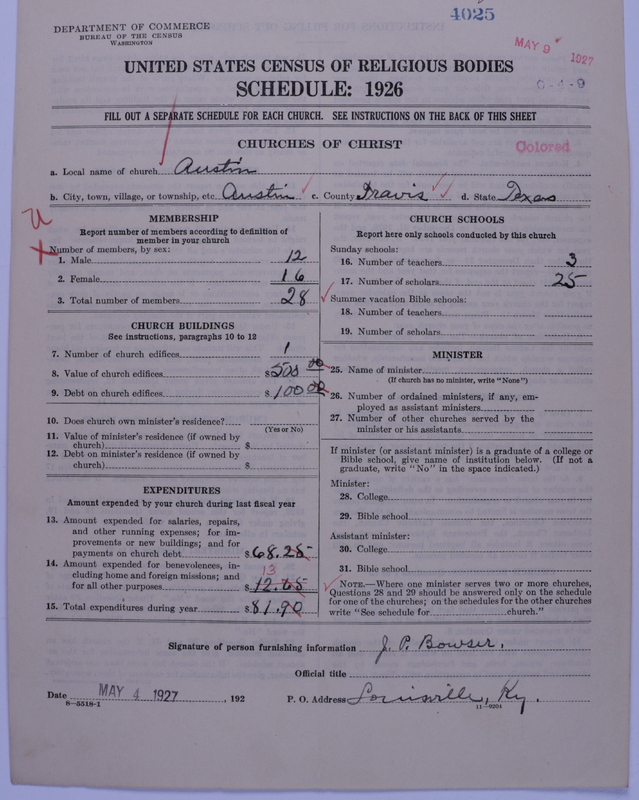 4025
DEPARTMENT OF COMMERCE
BUREAU OF THE CENSUS
WASHINGTON
MAY 9 1927
UNITED STATES CENSUS OF RELIGIOUS BODIES
SCHEDULE: 1926
0-4-9
FILL OUT A SEPARATE SCHEDULE FOR EACH CHURCH. SEE INSTRUCTIONS ON THE BACK OF THIS SHEET
CHURCHES OF CHRIST
Colored
a. Local name of church Austin
b. City, town, village, or township, etc. Austin c. County Travis d. State Texas
MEMBERSHIP
Report number of members according to definition of
member in your church
Number of members, by sex:
1. Male 12
2. Female 16
3. Total number of members 28
CHURCH BUILDINGS
See instructions, paragraphs 10 to 12
7. Number of church edifices 1
8. Value of church edifices $ 500 00
9. Debt on church edifices $ 100 00
10. Does church own minister's residence?
(Yes or No)
11. Value of minister's residence (if owned by
church) $
12. Debt on minister's residence (if owned by
church) $
EXPENDITURES
Amount expended by your church during last fiscal year
13. Amount expended for salaries, repairs,
and other running expenses; for im-
provements or new buildings; and for
payments on church debt $ 68.25
14. Amount expended for benevolences, in-
cluding home and foreign missions; and
for all other purposes $ 12.65
13
15. Total expenditures during year $ 81.90
CHURCH SCHOOLS
Report here only schools conducted by this church
Sunday schools:
16. Number of teachers 3
17. Number of scholars 25
Summer vacation Bible schools:
18. Number of teachers
19. Number of scholars
MINISTER
25. Name of minister
(If church has no minister, write "None")
26. Number of ordained ministers, if any, em-
ployed as assistant ministers
27. Number of other churches served by the
minister or his assistants
If minister (or assistant minister) is a graduate of a college or
Bible school, give name of institution below. (If not a
graduate, write "No" in the space indicated.)
Minister:
28. College
29. Bible school
Assistant minister:
30. College
31. Bible school
NOTE.—Where one minister serves two or more churches,
Questions 28 and 29 should be answered only on the schedule
for one of the churches; on the schedules for the other churches
write "See schedule for church."
Signature of person furnishing information J. P. Bowser.
Official title
Date MAY 4 1927, 192 P. O. Address Louisville, Ky.
8—5518-1 11—9204